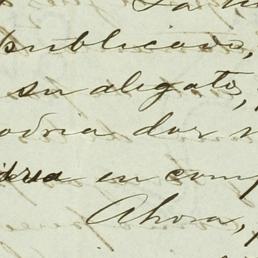 La
publicado,
su alegato,
podria dar
idrea en com
Ahora,